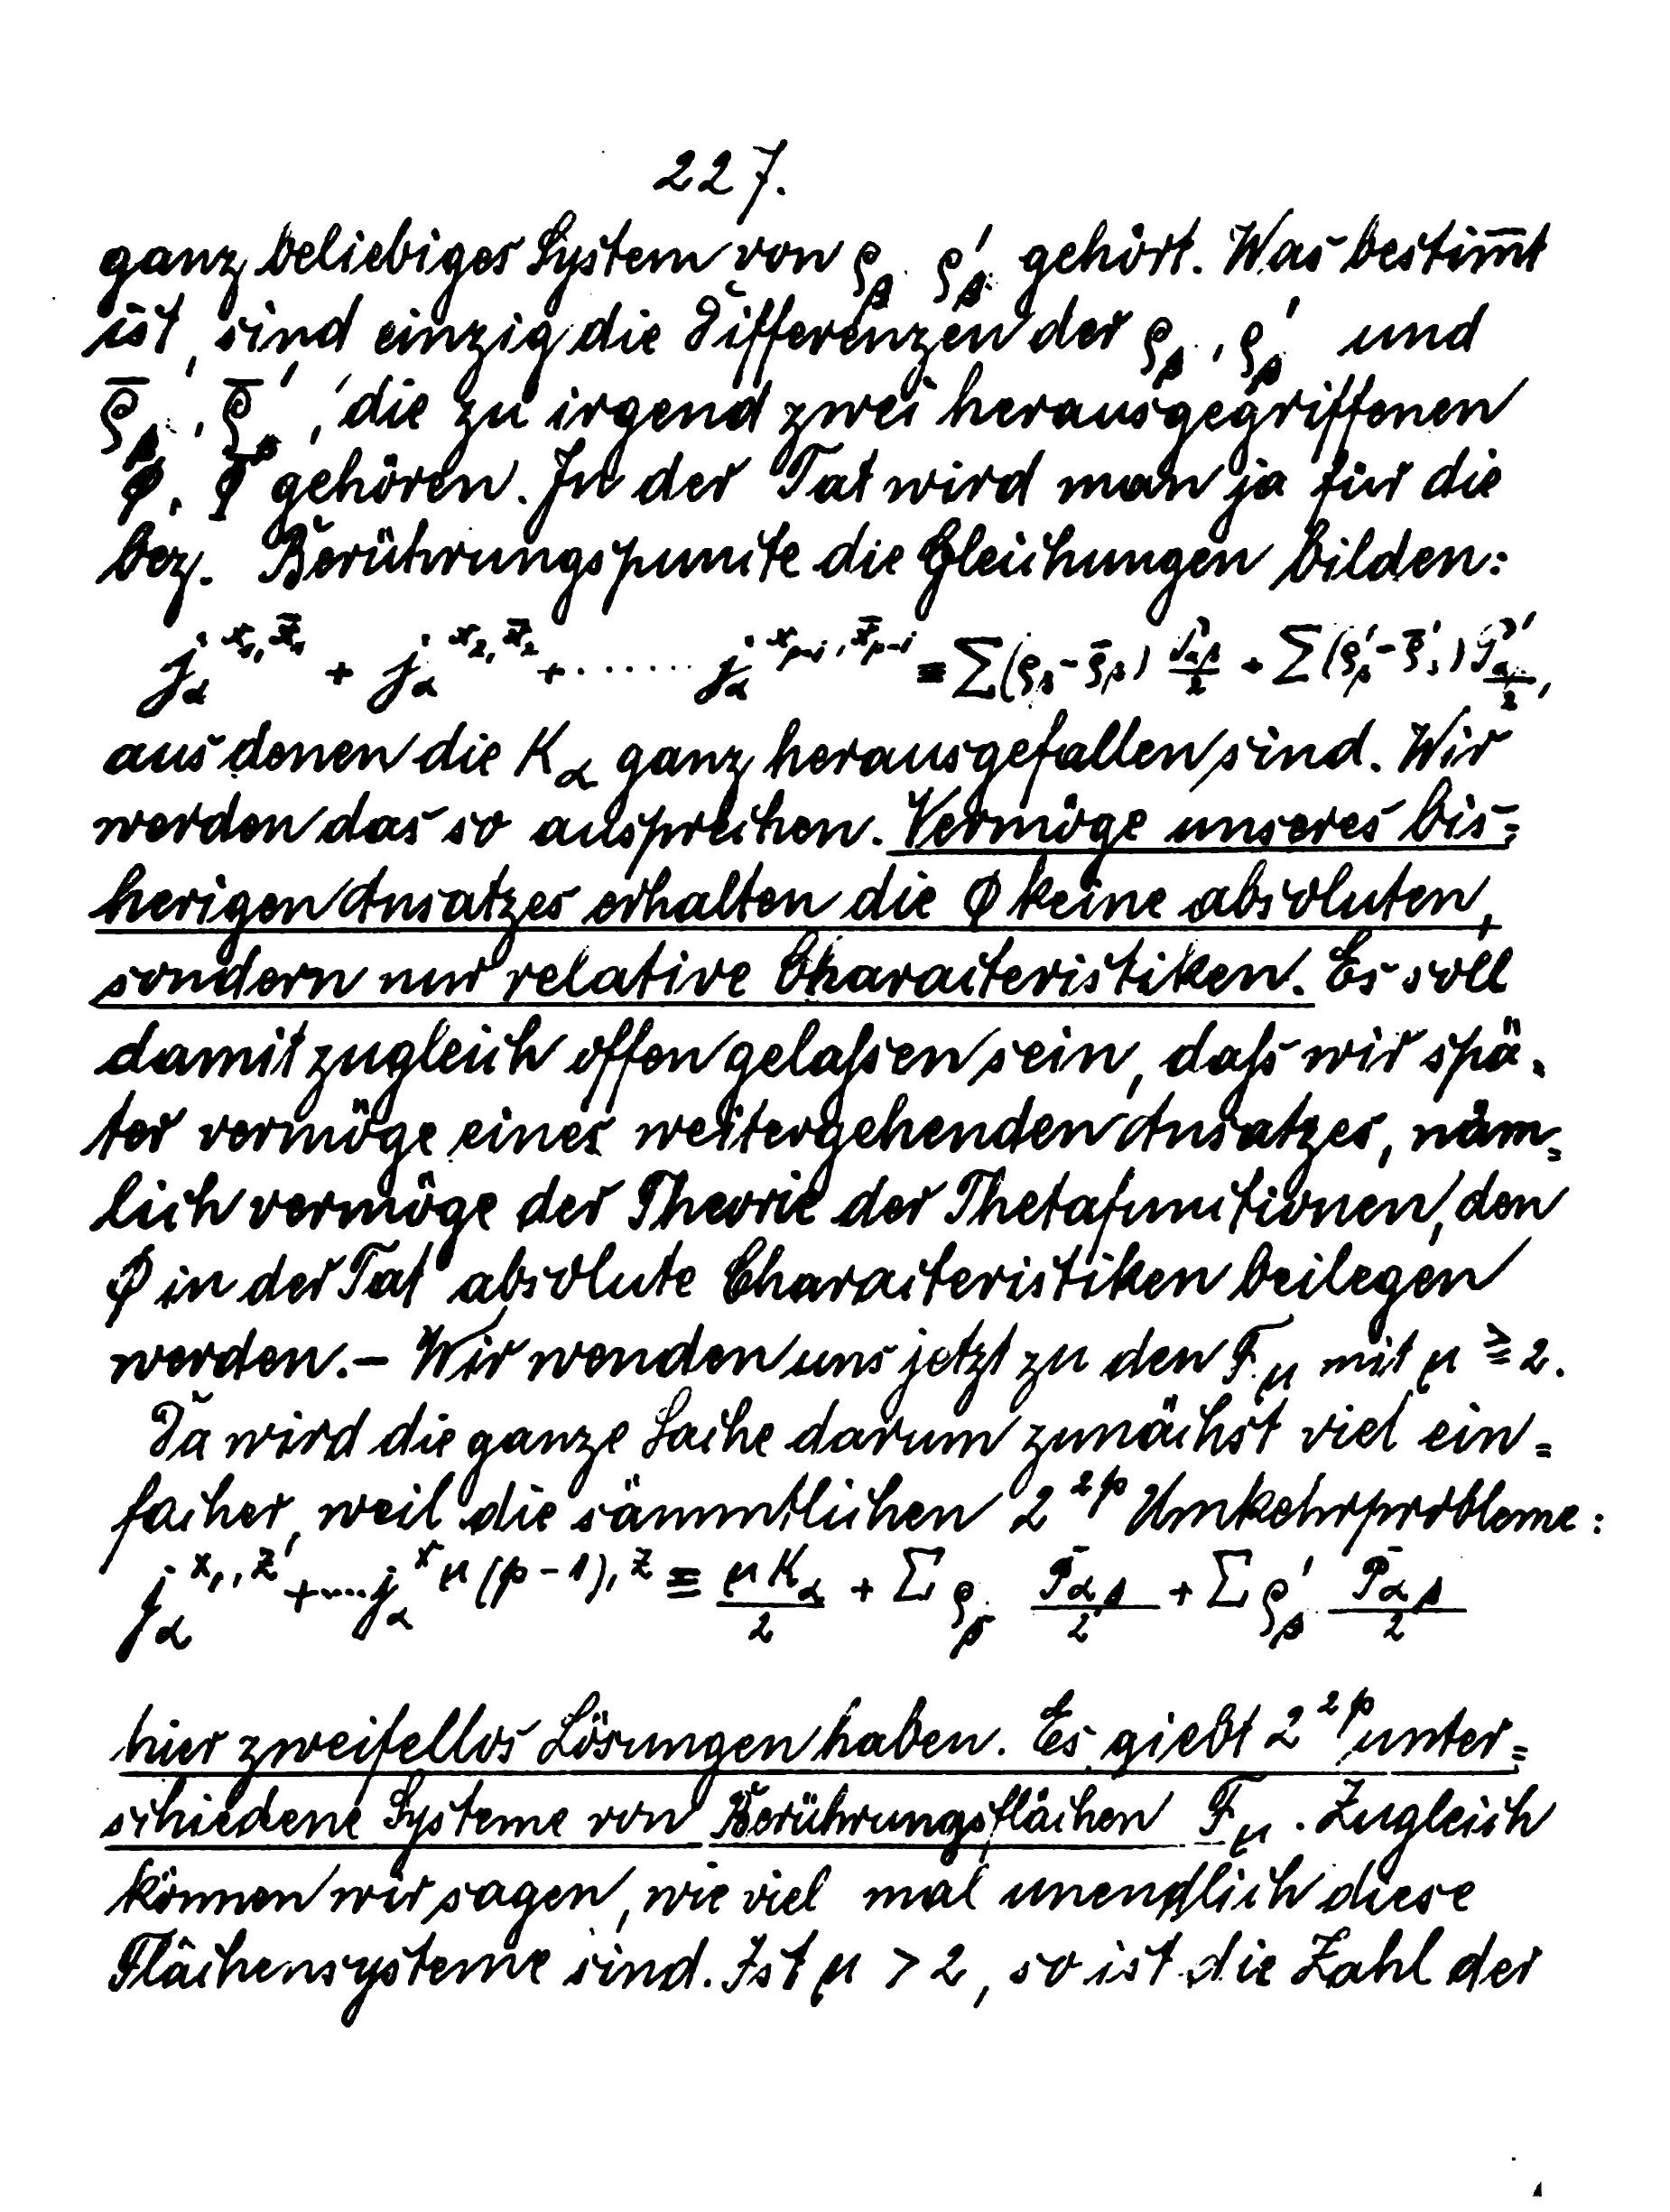 227.
ganz beliebiges System von ρ_β ρ'_β gehört. Was bestim̅t
ist, sind einzig die Differenzen der ρ_β, ρ'_β und
ρ̅_β, ρ̅'_β, die zu irgend zwei herausgegriffenen
Φ, Φ̅ gehören. In der Tat wird man ja für die
bez. Berührungspunkte die Gleichungen bilden:
j_α^{x_1, x̅_1} + j_α^{x_2, x̅_2} + ...... j_α^{x_{p-1}, x̅_{p-1}} ≡ Σ(ρ_β - ρ̅_β) P_{αβ}/2 + Σ(ρ'_β - ρ̅'_β) P'_{αβ}/2,
aus denen die K_α ganz herausgefallen sind. Wir
werden das so aussprechen. Vermöge unseres bis=
herigen Ansatzes erhalten die Φ keine absoluten,
sondern nur relative Charakteristiken. Es soll
damit zugleich offen gelaſsen sein, daſs wir spä-
ter vermöge eines weitergehenden Ansatzes, näm=
lich vermöge der Theorie der Thetafunctionen, den
Φ in der Tat absolute Characteristiken beilegen
werden. – Wir wenden uns jetzt zu den F_μ mit μ ≧ 2.
Da wird die ganze Sache darum zunächst viel ein=
facher, weil die sämmtlichen 2^{2p} Umkehrprobleme:
j_α^{x_1, z} + ... j_α^{x_{μ(p-1)}, z} ≡ μK_α/2 + Σ ρ_β P_{αβ}/2 + Σ ρ'_β P_{αβ}/2
hier zweifellos Lösungen haben. Es giebt 2^{2p} unter=
schiedene Systeme von Berührungsflächen F_μ. Zugleich
können wir sagen, wie viel mal unendlich diese
Flächensysteme sind. Ist μ > 2, so ist die Zahl der